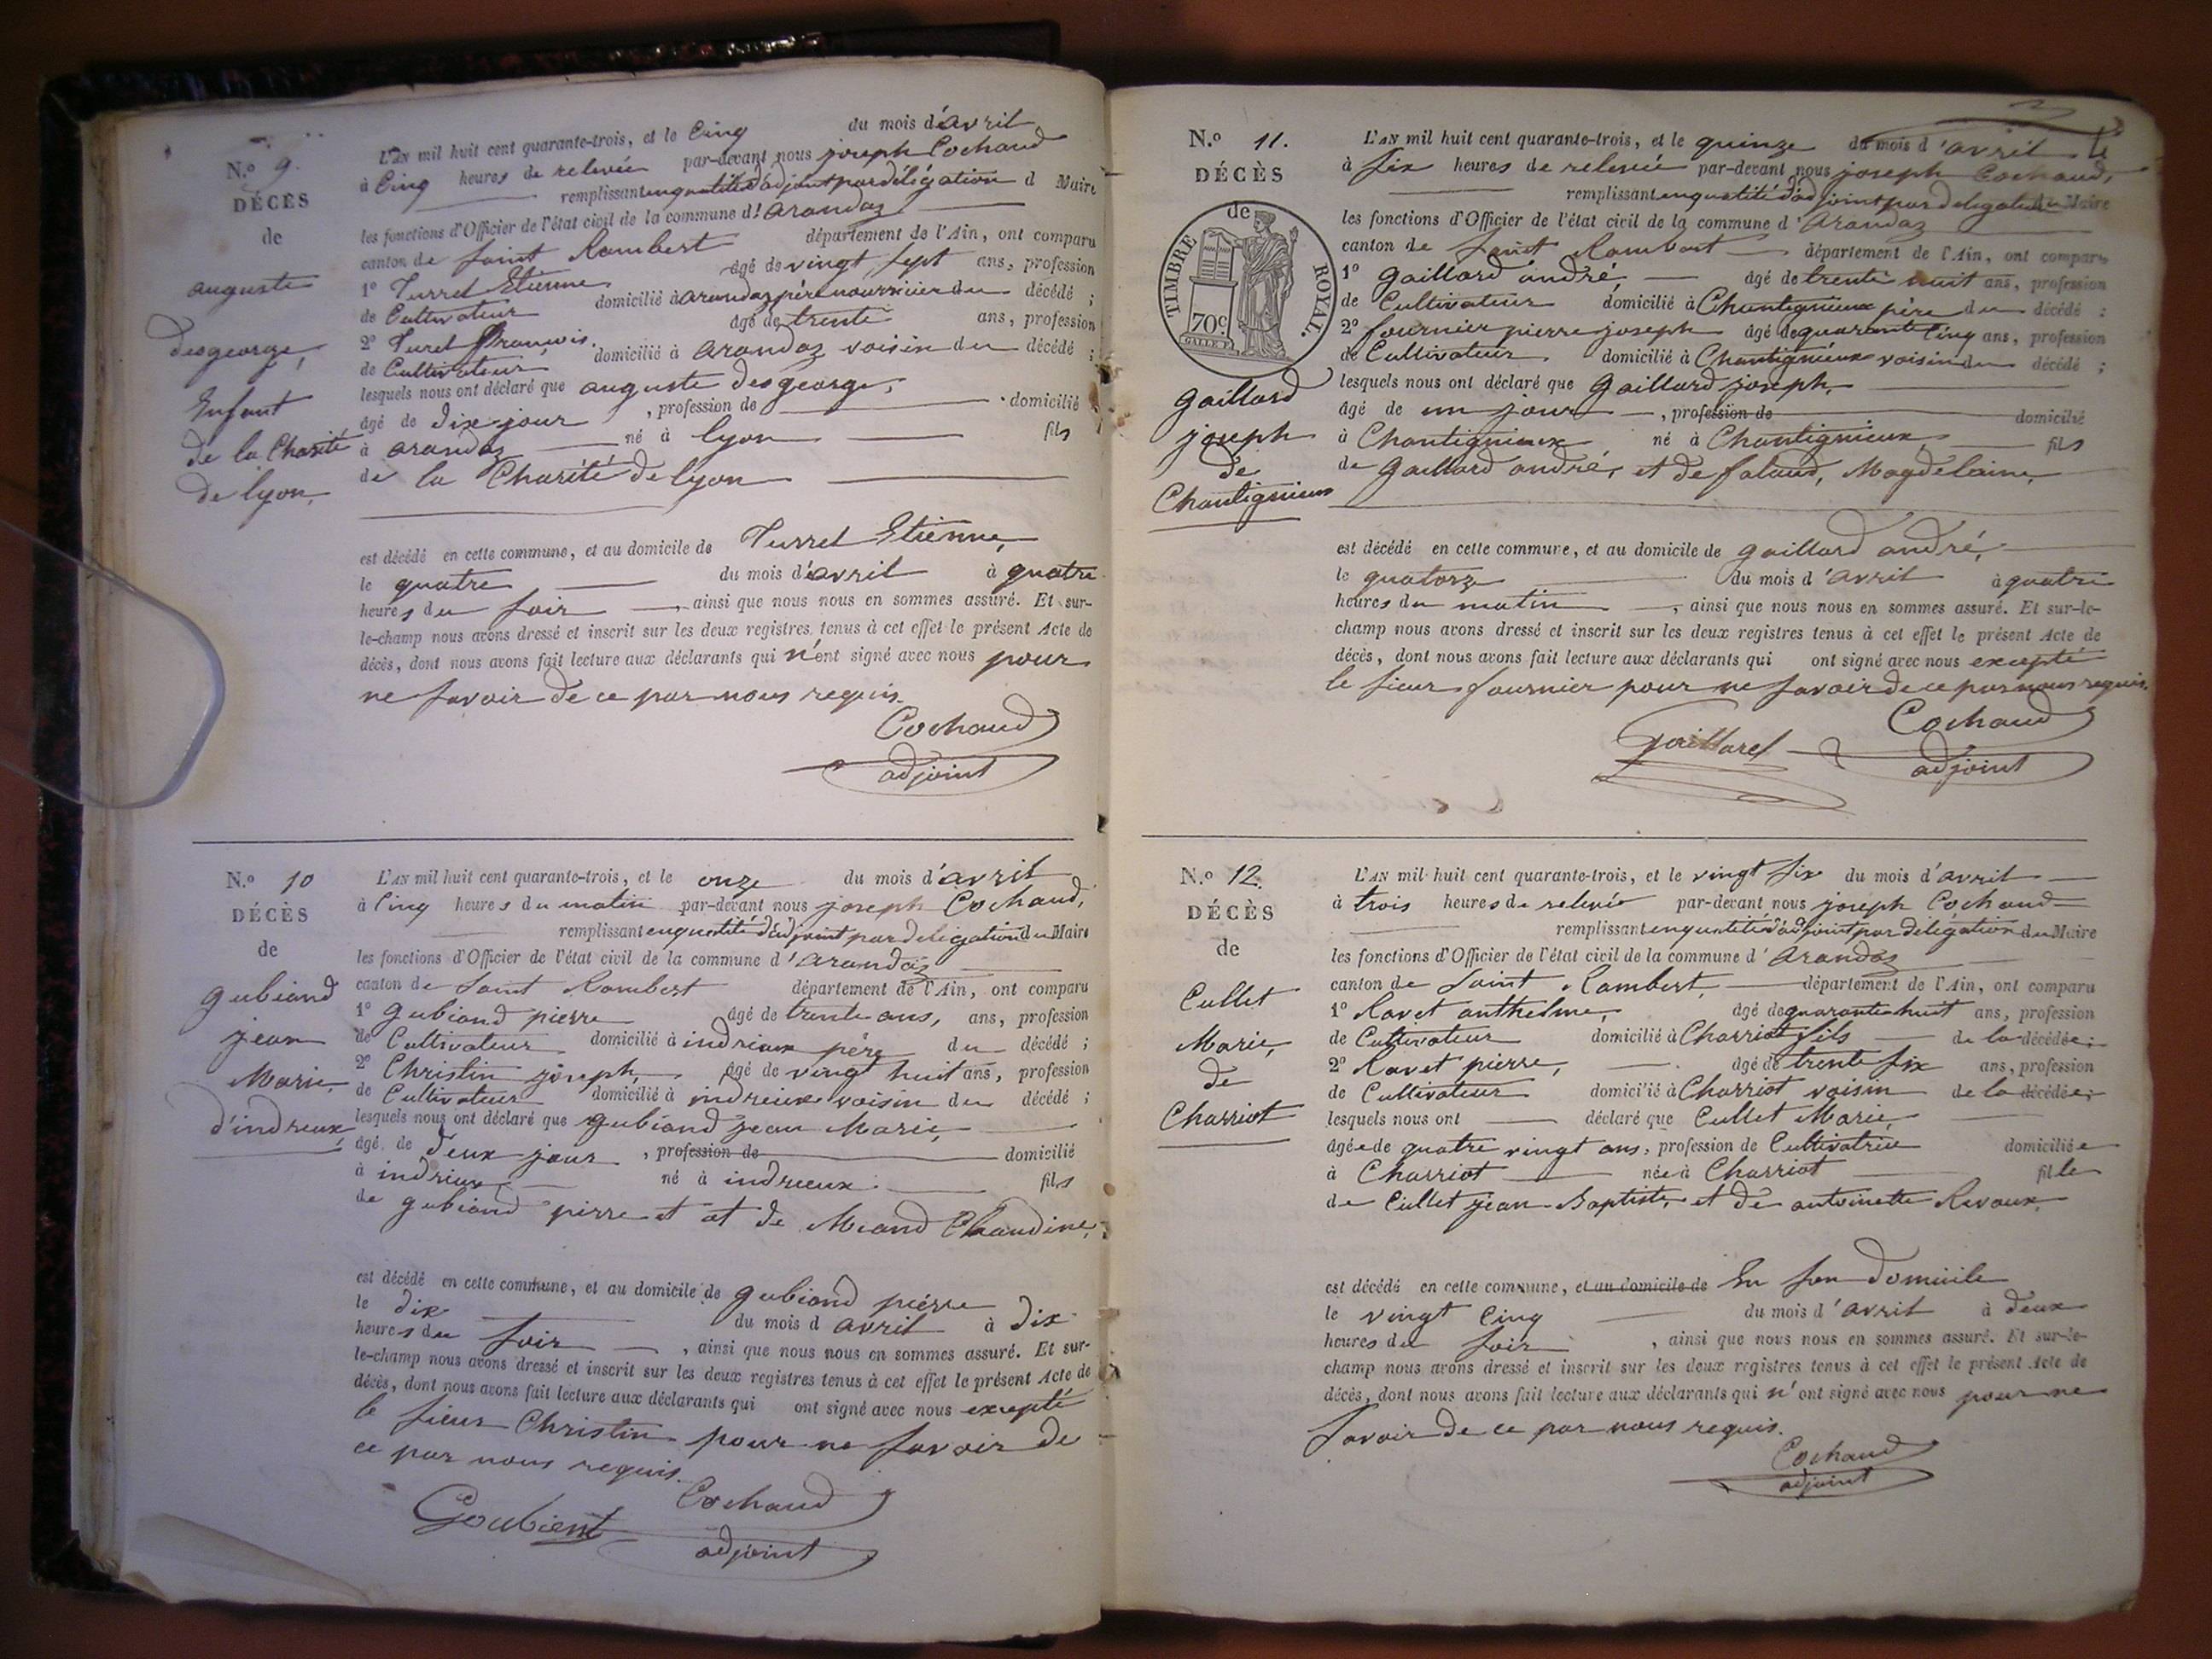 N.o 9.
DÉCÈS
de
auguste
desgeorge,
Enfant
de la Charité
de lyon,
L'AN mil huit cent quarante-trois, et le Cinq du mois d'avril
à Cinq heures de relevée par-devant nous joseph Cochaud
remplissant en qualité d'adjoint par délégation d Maire
les fonctions d'Officier de l'état civil de la commune d'arandaz
canton de Saint Rambert département de l'Ain, ont comparu
1o Turrel Etienne âgé de vingt sept ans, profession
de Cultivateur domicilié à arandaz père nourricier du décédé ;
2o Turel François. âgé de trente ans, profession
de Cultivateur domicilié à arandaz voisin du décédé ;
lesquels nous ont déclaré que auguste desgeorge,
âgé de dix jour , profession de domicilié
à arandaz né à lyon fils
de la Charité de lyon
est décédé en cette commune, et au domicile de Turrel Etienne,
le quatre du mois d'avril à quatre
heures du soir ainsi que nous nous en sommes assuré. Et sur-
le-champ nous avons dressé et inscrit sur les deux registres tenus à cet effet le présent Acte de
décès, dont nous avons fait lecture aux déclarants qui n'ont signé avec nous pour
ne savoir de ce par nous requis.
Cochaud
adjoint
N.o 10
DÉCÈS
de
gubiand
jean
Marie,
d'indrieux,
L'AN mil huit cent quarante-trois, et le onze du mois d'avril
à Cinq heures du matin par-devant nous joseph Cochaud,
remplissant en qualité d'adjoint par délégation du Maire
les fonctions d'Officier de l'état civil de la commune d'arandaz
canton de Saint Rambert département de l'Ain, ont comparu
1o gubiand pierre âgé de trente ans, ans, profession
de Cultivateur domicilié à indrieux père du décédé ;
2o Christin joseph, âgé de vingt huit ans, profession
de Cultivateur domicilié à indrieux voisin du décédé ;
lesquels nous ont déclaré que gubiand jean Marie,
âgé de deux jour , profession de domicilié
à indrieux né à indrieux fils
de gubiand pierre et et de Meand Claudine,
est décédé en cette commune, et au domicile de gubiand pierre
le dix du mois d avril à dix
heures du soir , ainsi que nous nous en sommes assuré. Et sur-
le-champ nous avons dressé et inscrit sur les deux registres tenus à cet effet le présent Acte de
décès, dont nous avons fait lecture aux déclarants qui ont signé avec nous excepté
le sieur Christin pour ne savoir de
ce par nous requis.
Goubient Cochaud
adjoint
N.o 11.
DÉCÈS
de
TIMBRE ROYAL.
70c
gaillard
joseph
de
Chantignieux
L'AN mil huit cent quarante-trois, et le quinze du mois d'avril
à six heures de relevée par-devant nous joseph Cochaud,
remplissant en qualité d'adjoint par délégation du Maire
les fonctions d'Officier de l'état civil de la commune d'arandaz
canton de Saint Rambert département de l'Ain, ont comparu
1o gaillard andré, âgé de trente huit ans, profession
de Cultivateur domicilié à Chantignieux père du décédé ;
2o fournier pierre joseph âgé de quarante Cinq ans, profession
de Cultivateur domicilié à Chantignieux voisin du décédé ;
lesquels nous ont déclaré que gaillard joseph,
âgé de un jour , profession de domicilié
à Chantignieux né à Chantignieux fils
de gaillard andré, et de falaud, Magdelaine,
est décédé en cette commune, et au domicile de gaillard andré,
le quatorze du mois d'avril à quatre
heures du matin , ainsi que nous nous en sommes assuré. Et sur-le-
champ nous avons dressé et inscrit sur les deux registres tenus à cet effet le présent Acte de
décès, dont nous avons fait lecture aux déclarants qui ont signé avec nous excepté
le sieur fournier pour ne savoir de ce par nous requis.
gaillard Cochaud
adjoint
N.o 12.
DÉCÈS
de
Cullet
Marie,
de
Charriot
L'AN mil huit cent quarante-trois, et le vingt six du mois d'avril
à trois heures de relevée par-devant nous joseph Cochaud
remplissant en qualité d'adjoint par délégation du Maire
les fonctions d'Officier de l'état civil de la commune d'arandaz
canton de Saint Rambert, département de l'Ain, ont comparu
1o Ravet anthelme, âgé de quarante huit ans, profession
de Cultivateur domicilié à Charriot fils de la décédée ;
2o Ravet pierre, âgé de trente six ans, profession
de Cultivateur domicilié à Charriot voisin de la décédée ;
lesquels nous ont déclaré que Cullet Marie,
âgée de quatre vingt ans, profession de Cultivatrice domiciliée
à Charriot née à Charriot fille
de Cullet jean-Baptiste, et de antoinette Revaux,
est décédé en cette commune, et au domicile de En son domicile
le vingt Cinq du mois d'avril à deux
heures du soir , ainsi que nous nous en sommes assuré. Et sur-le-
champ nous avons dressé et inscrit sur les deux registres tenus à cet effet le présent Acte de
décès, dont nous avons fait lecture aux déclarants qui n'ont signé avec nous pour ne
savoir de ce par nous requis.
Cochaud
adjoint